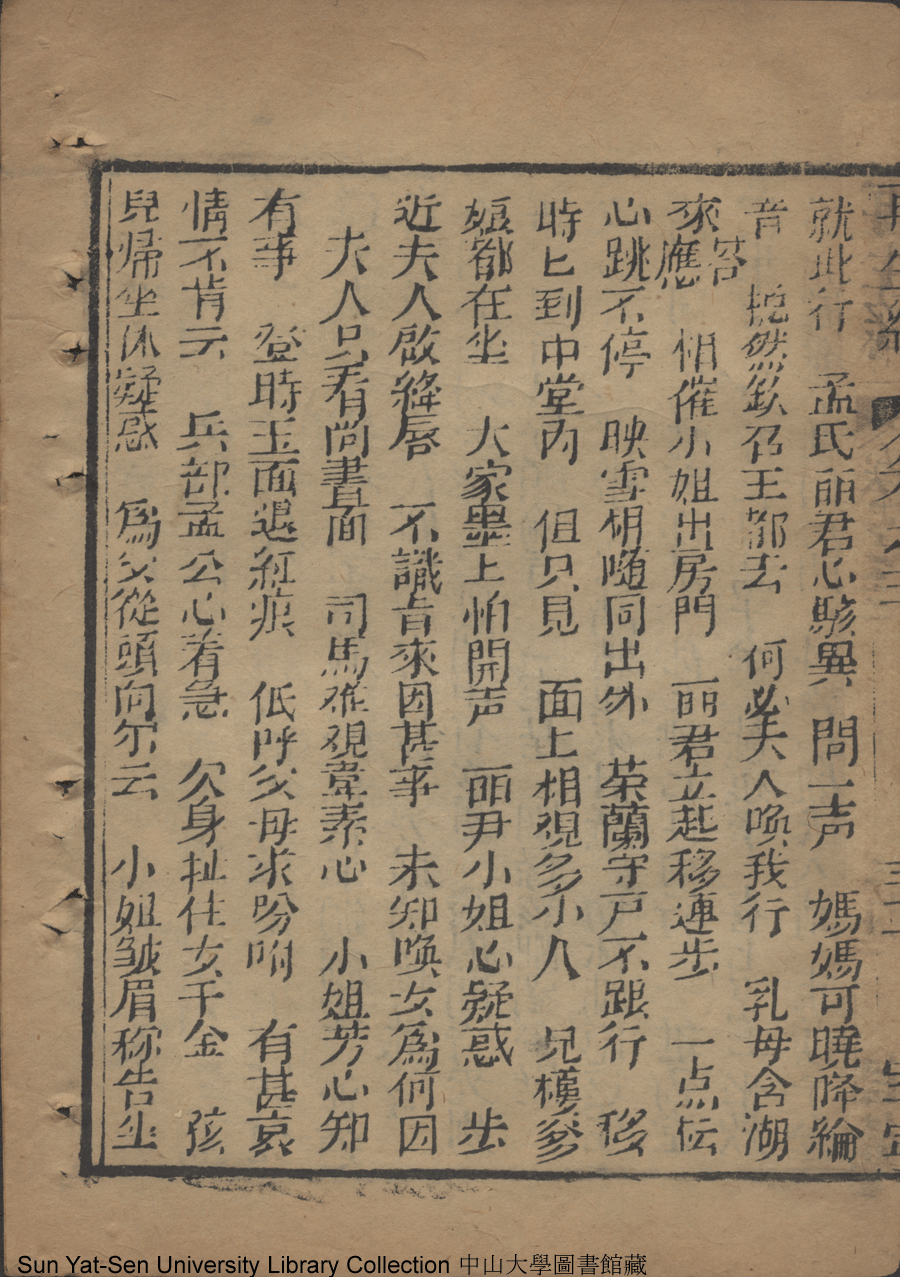 就此行　孟氏丽君心駭異　問一声　媽媽可曉降綸
音　挽然欽召王都去　何必夫人喚我行　乳母含湖
來應答　相催小姐出房門　丽君立起移連步　一点伝
心跳不停　映雪相随同出外　荣蘭守戸不跟行　移
時匕到中堂内　但只見　面上相視多少人　兄模爹
娘都在坐　大家墨上怕開声　丽尹小姐心疑惑　步
近夫人啟絳唇　不識旨來因甚事　未知喚女為何因
夫人只看尚書面　司馬难視韋素心　小姐芳心知
有事　登時玉面退紅痕　低呼父母求吩咐　有甚哀
情不肯云　兵部孟公心着急　欠身扯住女千金　孩
兒帰坐休疑惑　為父從頭向尔云　小姐皱眉称告坐
Sun Yat-Sen University Library Collection 中山大學圖書館藏